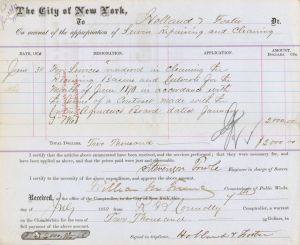 The City of New York,
To Holland & Foster Dr.
On account of the appropriation of Sewers repairing and Cleaning
DATE, 18 DESIGNATION. APPLICATION. AMOUNT. DOLLARS CTS.
June 30 For Services rendered in cleaning the
Receiving Basins and Culverts for the
Month of June 1870, in accordance with
the terms of a Contract made with the
Croton Aqueduct Board dated
2,000 00
TOTAL DOLLARS, Two Thousand 2,000 00
I certify that the articles above enumerated have been received, and the services performed; that they were necessary for, and have been
applied as above; and that the prices paid were just and reasonable.
Stevenson Towle Engineer in charge of Sewers
I certify to the correctness of the above account.
William M. Tweed Commissioner of Public Works.
Received, in the office of the Comptroller, in the City of New York, this
of July 1870 from R. B. Connolly
Comptroller for the sum of Two Thousand Dollars, in
2,000 Signed in duplicate, Holland & Foster